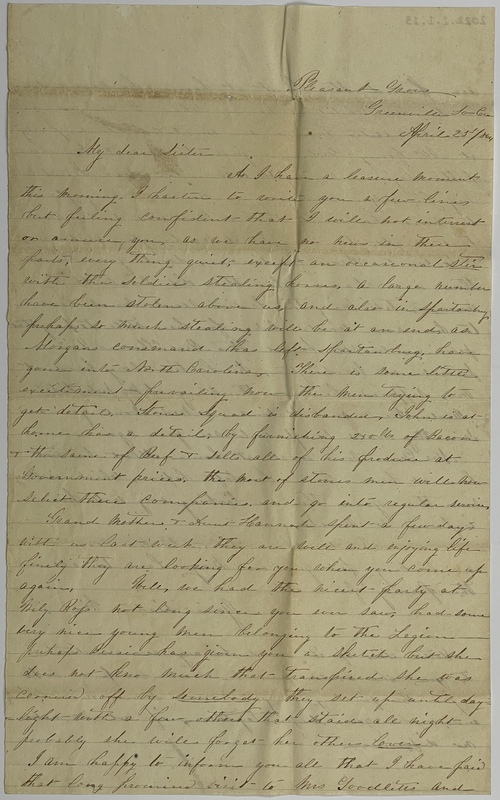 Pleasant Grove
Greenville So Ca
April 23rd/64
My dear Sister
As I have a leasure moment
this morning I hasten to write you a few lines
but feeling confident that I will not interest
or amuse you, as we have no news in these
parts, every thing quiet, except an occasional stir
with the Soldiers stealing horses, a large number
have been stolen above us and also in Spartanburg
perhaps so much stealing will be at an end, as
Morgans command has left Spartanburg, have
gone into North Carolina. There is some little
excitement prevailing now the men trying to
get details, Stones Squad is disbanded, John is at
home has a detail, by furnishing 250 lbs of Bacon
& the same of Beef & sells all of his produce at
Government prices, the most of stones men will now
select there companies and go into regular service,
Grand Mother & Aunt Hannah spent a few days
with us last week they are well and enjoying life
finely they are looking for you when you come up
again. Well, we had the nicest party at
Wily Ross not long since you ever saw, had some
very nice young men belonging to the Legion
perhaps has given you a sketch but she
does not know much that transpired she was
cornered off by Somebody they set up until day
light with a few others that staid all night
probably she will forget her other lovers
I am happy to inform you all that I have paid
that long promised visit to Mrs Goodletts and